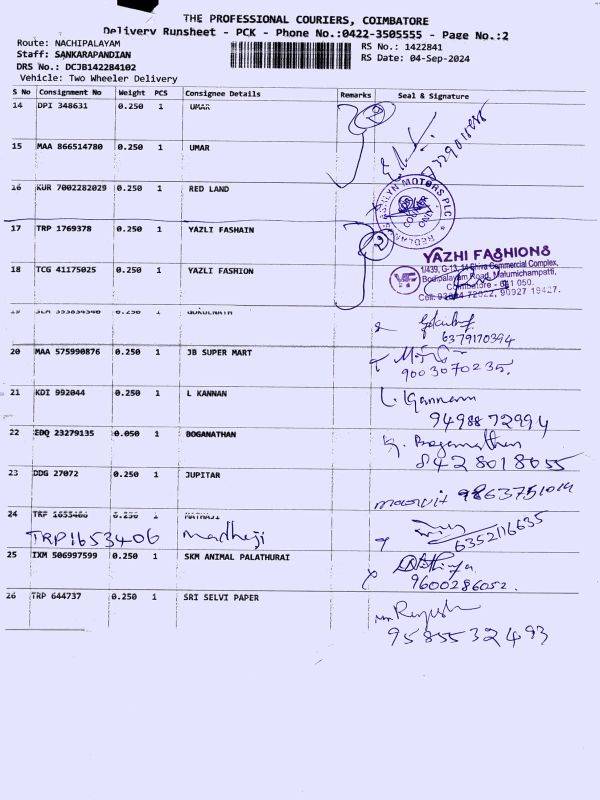 THE PROFESSIONAL COURIERS, COIMBATORE
Delivery Runsheet - PCK - Phone No.:0422-3505555 - Page No.:2
Route: NACHIPALAYAM
RS No.: 1422841
Staff: SANKARAPANDIAN
RS Date: 04-Sep-2024
DRS No.: DCJB142284102
Vehicle: Two Wheeler Delivery
S No Consignment No Weight PCS Consignee Details Remarks Seal & Signature
14 DPI 348631 0.250 1 UMAR
15 MAA 866514780 0.250 1 UMAR
16 KUR 7002282029 0.250 1 RED LAND
MOTORS PLC
COURIER
ONLY
REDLAND
17 TRP 1769378 0.250 1 YAZLI FASHAIN
2
YAZHI FASHIONS
1/439, G-13, 14 Shiva Commercial Complex,
Bodipalayam Road, Malumichampatti,
Coimbatore - 641 050.
18 TCG 41175025 0.250 1 YAZLI FASHION
19 0.250 1 GOKULNATH
6379170394
20 MAA 575990876 0.250 1 JB SUPER MART
9003070235.
21 KDI 992044 0.250 1 L KANNAN
L. Kannan
9498872994
22 EDQ 23279135 0.050 1 BOGANATHAN
Boganathan
8428018055
23 DDG 27072 0.250 1 JUPITAR
24 TRP 1653406 0.250 1 MATHAJI
TRP1653406 madheji
6352116635
25 IXM 506997599 0.250 1 SKM ANIMAL PALATHURAI
9600286052.
26 TRP 644737 0.250 1 SRI SELVI PAPER
9585532493